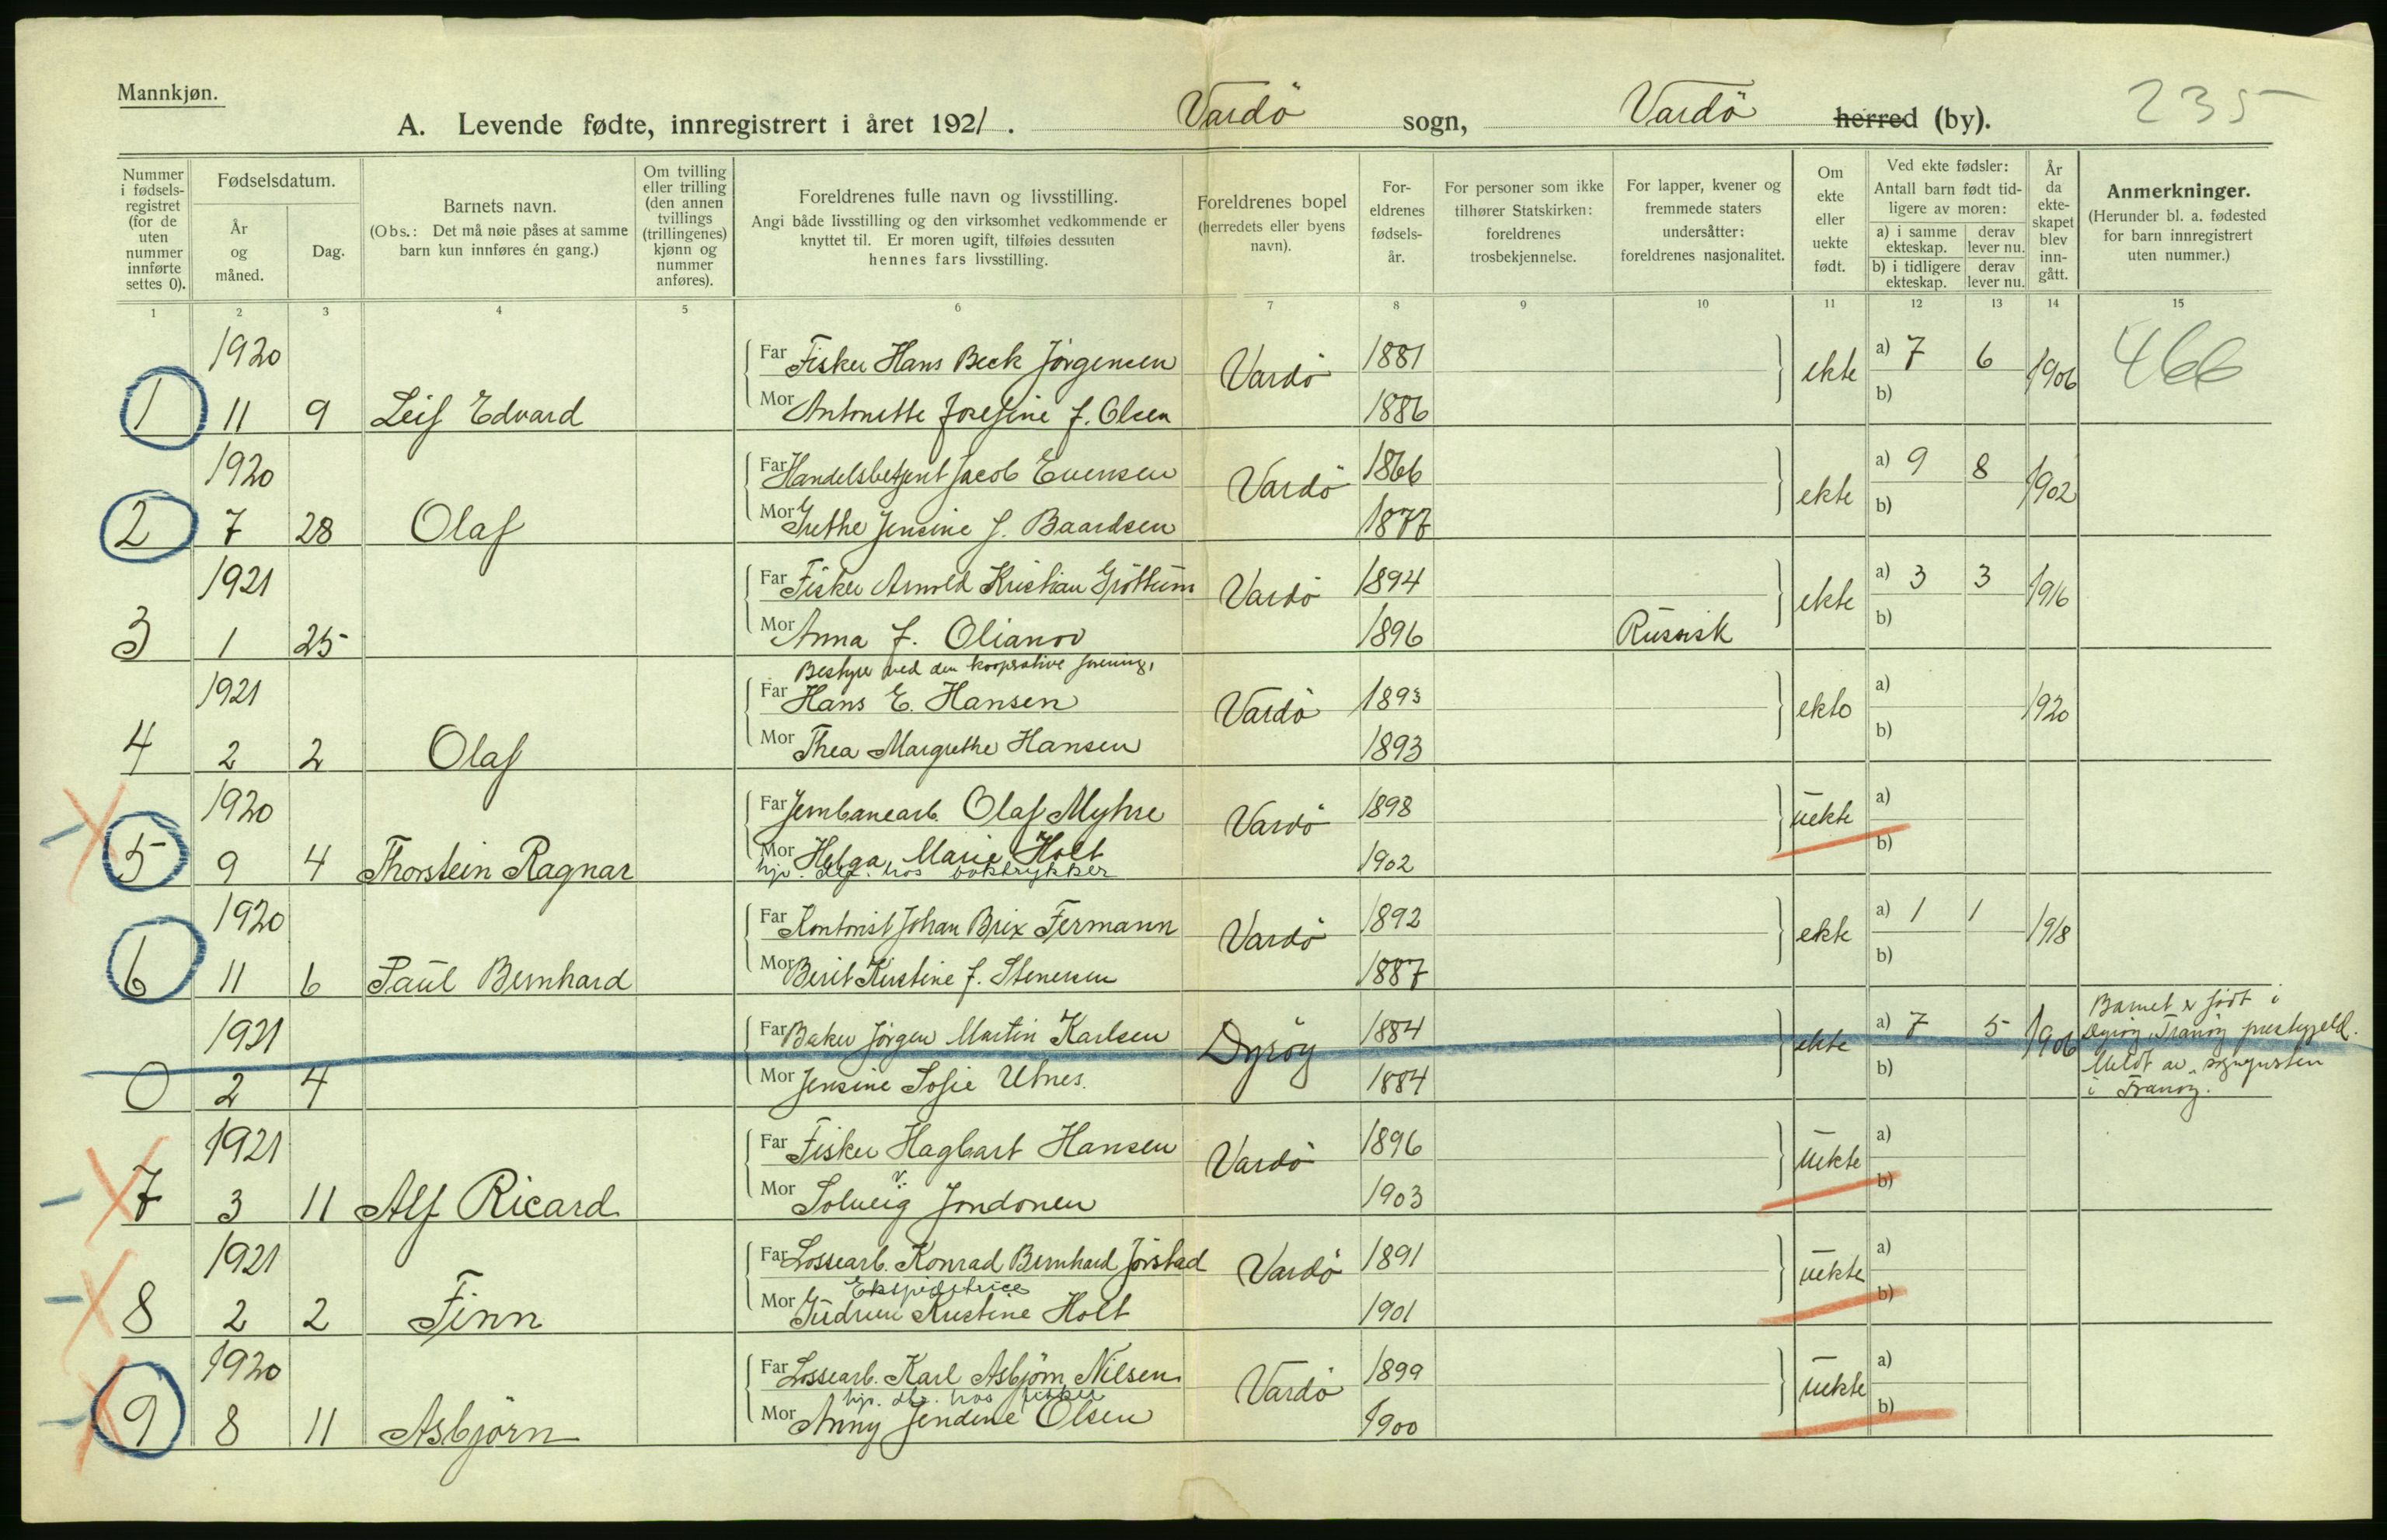 Mannkjøn.
A. Levende fødte, innregistrert i året 1921. Vardö sogn, Vardö herred (by). 235
Nummer i fødsels-registret (for de uten nummer innførte settes 0).
Fødselsdatum.
År og måned.
Dag.
Barnets navn.
(Obs.: Det må nøie påses at samme barn kun innføres én gang.)
Om tvilling eller trilling (den annen tvillings (trillingenes) kjønn og nummer anføres).
Foreldrenes fulle navn og livsstilling.
Angi både livsstilling og den virksomhet vedkommende er knyttet til. Er moren ugift, tilføies dessuten hennes fars livsstilling.
Foreldrenes bopel (herredets eller byens navn).
For-eldrenes fødsels-år.
For personer som ikke tilhører Statskirken: foreldrenes trosbekjennelse.
For lapper, kvener og fremmede staters undersåtter: foreldrenes nasjonalitet.
Om ekte eller uekte født.
Ved ekte fødsler:
Antall barn født tid-ligere av moren:
a) i samme ekteskap. derav lever nu.
b) i tidligere ekteskap. derav lever nu.
År da ekte-skapet blev inn-gått.
Anmerkninger.
(Herunder bl. a. fødested for barn innregistrert uten nummer.)
1 2 3 4 5 6 7 8 9 10 11 12 13 14 15
1920 Far Fisker Hans Beck Jörgensen Vardö 1881 ekte a) 7 6 1906 466
1 11 9 Leif Edvard Mor Antonette Josefine f. Olsen 1886 b)
1920 Far Handelsbetjent Jacob Evensen Vardö 1866 ekte a) 9 8 1902
2 7 28 Olaf Mor Grethe Jensine f. Baardsen 1877 b)
1921 Far Fisker Arnold Kristian Gröttum Vardö 1894 ekte a) 3 3 1916
3 1 25 Mor Anna f. Olianov 1896 Russisk b)
Bestyr ved den kooperative forening,
1921 Far Hans E. Hansen Vardö 1893 ekte a) 1920
4 2 2 Olaf Mor Thea Margrethe Hansen 1893 b)
1920 Far Jernbanearb. Olaf Myhre Vardö 1898 uekte a)
5 9 4 Thorstein Ragnar Mor Helga Marie Holt 1902 b)
hjp. dtr. hos boktrykker
1920 Far Kontorist Johan Brix Fermann Vardö 1892 ekte a) 1 1 1918
6 11 6 Paul Bernhard Mor Berit Kristine f. Stenersen 1887 b)
1921 Far Baker Jörgen Martin Karlsen Dyröy 1884 ekte a) 7 5 1906 Barnet er födt i Dyröy, Tranöy prestegjeld.
0 2 4 Mor Jensine Sofie Utnes. 1884 b) Meldt av sognepresten i Tranöy.
1921 Far Fisker Hagbart Hansen Vardö 1896 uekte a)
7 3 11 Alf Ricard Mor Solveig Jondonen 1903 b)
1921 Far Lossearb. Konrad Bernhard Jörstad Vardö 1891 uekte a)
Ekspeditrice
8 2 2 Finn Mor Gudrun Kristine Holt 1901 b)
1920 Far Lossearb. Karl Asbjörn Nilsen Vardö 1899 uekte a)
hjp. dtr. hos fisker
9 8 11 Asbjörn Mor Anny Jendine Olsen 1900 b)